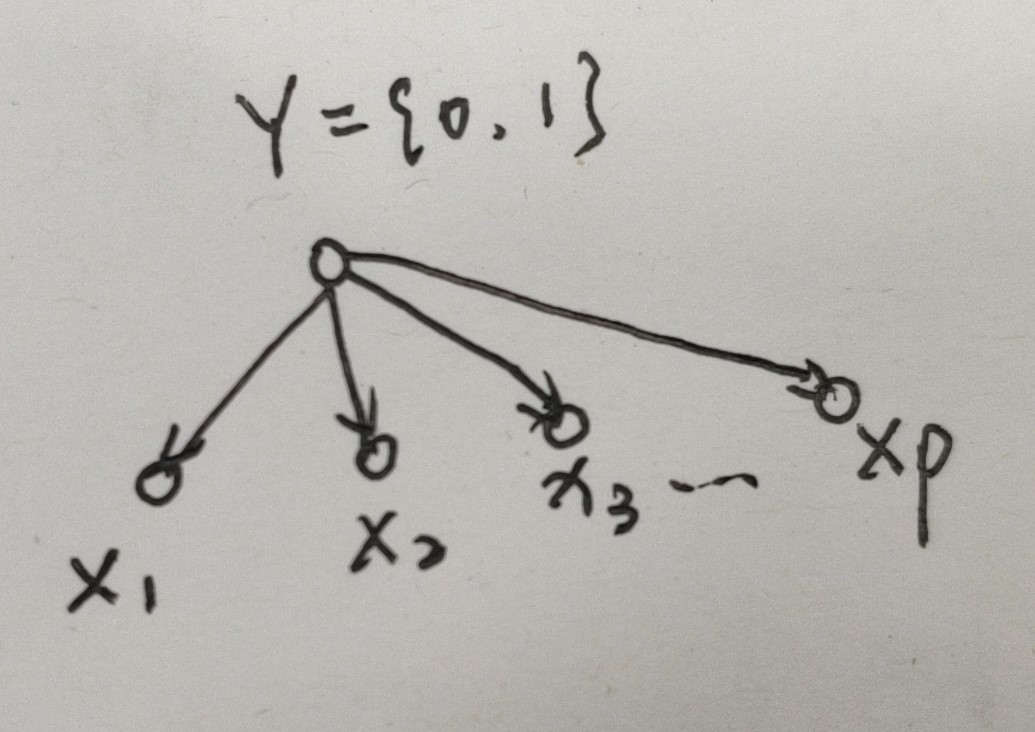 Y = {0, 1}
x1
x2
x3 ---
xp